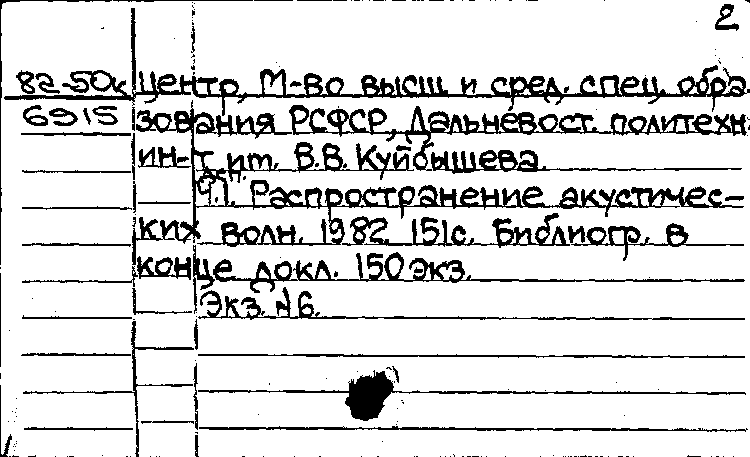 2
82-50к центр, М-во высш и сред. спец. обра-
6915 зования РСФСР, Дальневост. политехн.
ин-т им. В.В. Куйбышева.
Ч.1. Распространение акустичес-
ких волн. 1982. 151с. Библиогр. в
конце докл. 150 экз.
Экз. №6.